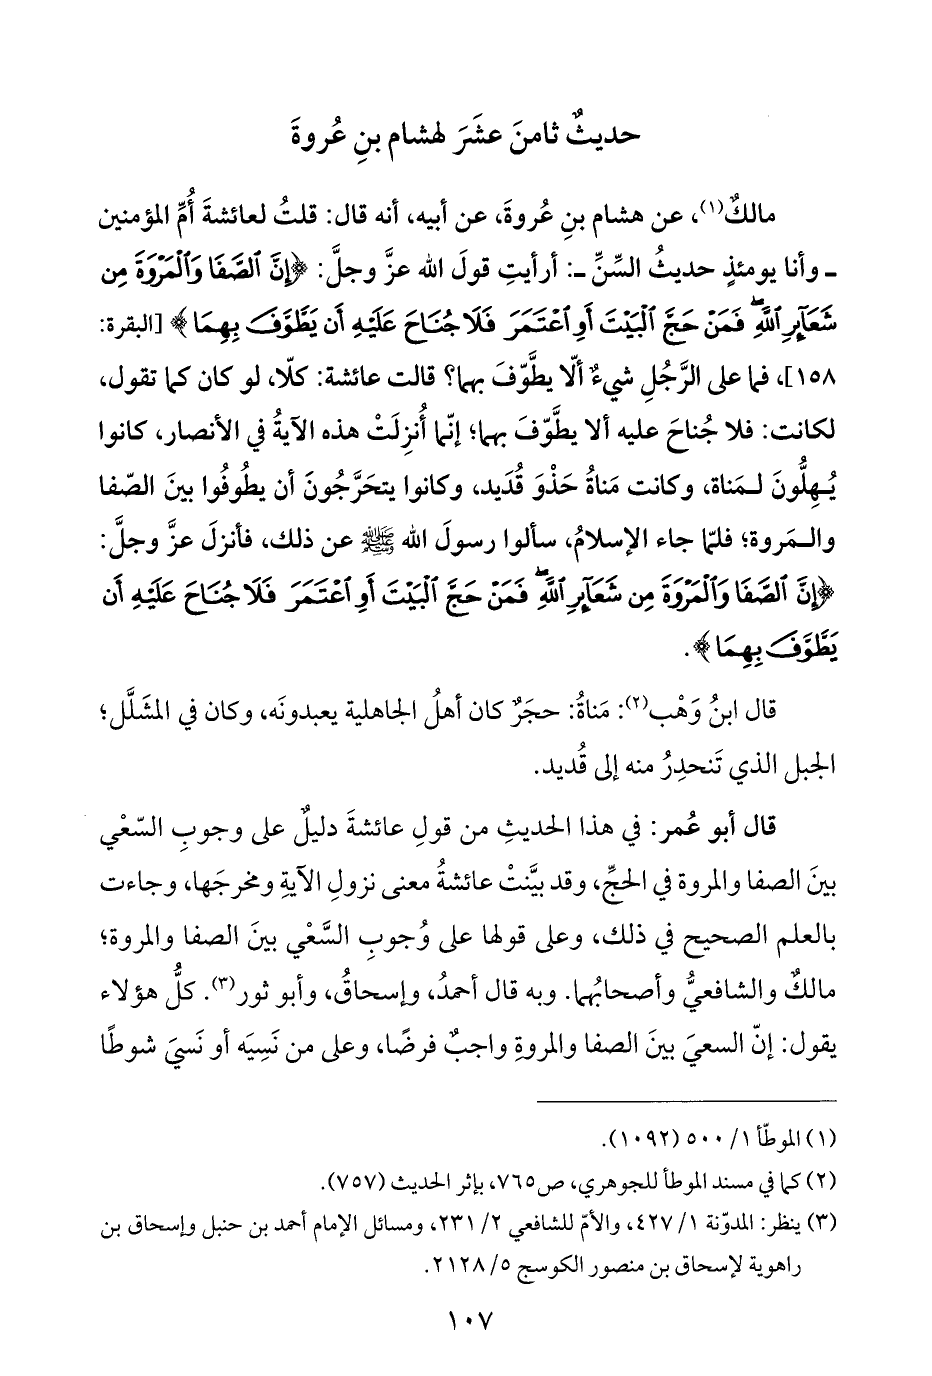 حديثٌ ثامنَ عشَرَ لهشام بنِ عُروةَ
مالكٌ(١)، عن هشام بنِ عُروةَ، عن أبيه، أنه قال: قلتُ لعائشةَ أُمِّ المؤمنين
ـ وأنا يومئذٍ حديثُ السِّنِّ ـ: أرأيتِ قولَ الله عزَّ وجلَّ: ﴿إِنَّ ٱلصَّفَا وَٱلْمَرْوَةَ مِن
شَعَآئِرِ ٱللَّهِۖ فَمَنْ حَجَّ ٱلْبَيْتَ أَوِ ٱعْتَمَرَ فَلَا جُنَاحَ عَلَيْهِ أَن يَطَّوَّفَ بِهِمَا﴾ [البقرة:
١٥٨]، فما على الرَّجُلِ شيءٌ ألّا يطَّوّفَ بهما؟ قالت عائشة: كلّا، لو كان كما تقول،
لكانت: فلا جُناحَ عليه ألا يطَّوّفَ بهما؛ إنّما أُنزِلَتْ هذه الآيةُ في الأنصار، كانوا
يُـهِلُّونَ لـمَناة، وكانت مَناةُ حَذْوَ قُدَيد، وكانوا يتحَرَّجُونَ أن يطُوفُوا بينَ الصّفا
والـمَروة؛ فلمّا جاء الإسلامُ، سألوا رسولَ الله ﷺ عن ذلك، فأنزلَ عزَّ وجلَّ:
﴿إِنَّ ٱلصَّفَا وَٱلْمَرْوَةَ مِن شَعَآئِرِ ٱللَّهِۖ فَمَنْ حَجَّ ٱلْبَيْتَ أَوِ ٱعْتَمَرَ فَلَا جُنَاحَ عَلَيْهِ أَن
يَطَّوَّفَ بِهِمَا﴾.
قال ابنُ وَهْب(٢): مَناةُ: حجَرٌ كان أهلُ الجاهلية يعبدونَه، وكان في المشَلَّل؛
الجبل الذي تَنحدِرُ منه إلى قُديد.
قال أبو عُمر: في هذا الحديثِ من قولِ عائشةَ دليلٌ على وجوبِ السّعْي
بينَ الصفا والمروة في الحجِّ، وقد بيَّنتْ عائشةُ معنى نزولِ الآيةِ ومخرجَها، وجاءت
بالعلم الصحيح في ذلك، وعلى قولها على وُجوبِ السَّعْي بينَ الصفا والمروة؛
مالكٌ والشافعيُّ وأصحابُهُما. وبه قال أحمدُ، وإسحاقُ، وأبو ثور(٣). كلُّ هؤلاء
يقول: إنّ السعيَ بينَ الصفا والمروةِ واجبٌ فرضًا، وعلى من نَسِيَه أو نَسِيَ شوطًا
(١) الموطّأ ١/ ٥٠٠ (١٠٩٢).
(٢) كما في مسند الموطأ للجوهري، ص٧٦٥، بإثر الحديث (٧٥٧).
(٣) ينظر: المدوّنة ١/ ٤٢٧، والأمّ للشافعي ٢/ ٢٣١، ومسائل الإمام أحمد بن حنبل وإسحاق بن
راهوية لإسحاق بن منصور الكوسج ٥/ ٢١٢٨.
١٠٧